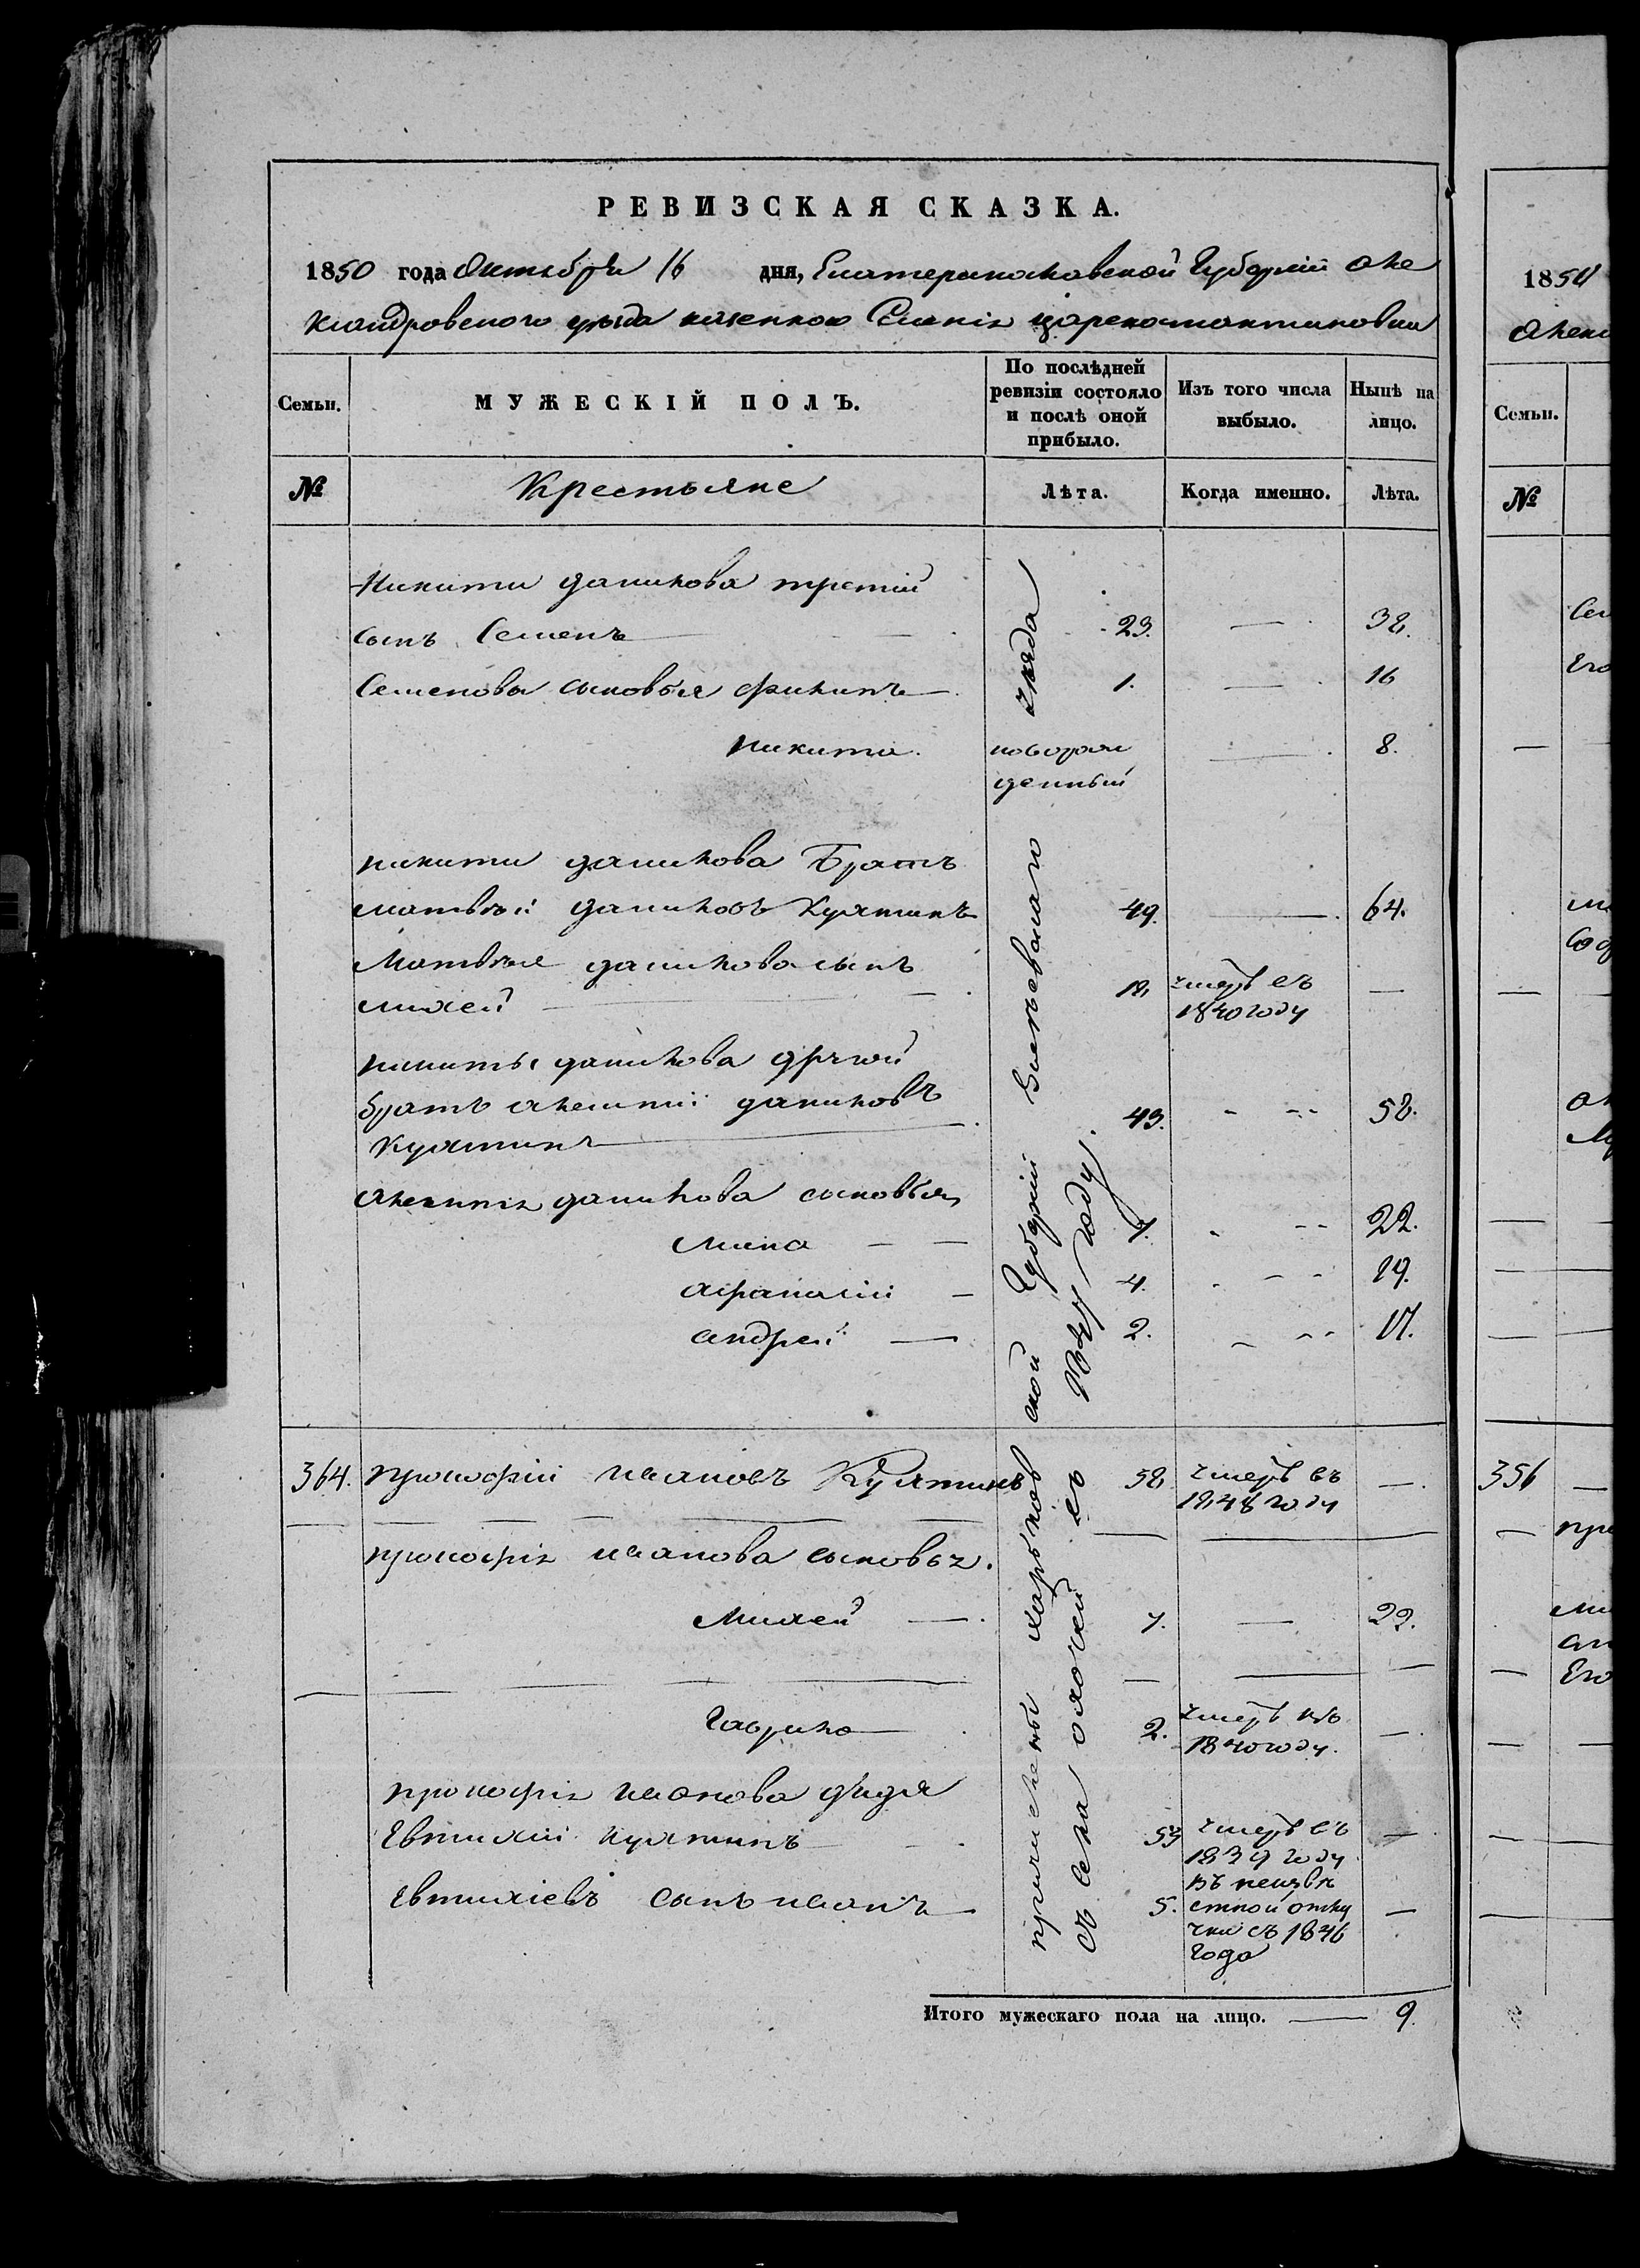 РЕВИЗСКАЯ СКАЗКА.
1850 года Октября 16 дня, Екатеринославской Губерніи Але
ксандровского уезда казенного Селенія Цареконстантиновки
Семьи.
МУЖЕСКІЙ ПОЛЪ.
По послѣдней ревизіи состояло и послѣ оной прибыло.
Изъ того числа выбыло.
Нынѣ на лицо.
№
Крестьяне
Лѣта.
Когда именно.
Лѣта.
Никиты данилова третій
сынъ Семенъ 23. — 38.
Семенова сыновья Филипъ 1. — 16
Никита. новорож — 8.
денный
никиты данилова Братъ
матвѣй даниловъ Кулятинъ 49. — 64.
Матвѣя данилова сынъ
михей — 18 умеръ въ —
1840 году
никиты данилова другой
братъ алексѣй даниловъ 43. 58.
Кулятинъ
данилова сыновья
Мина — — 7. 22.
афанасій — 4. 19.
андрей — 2. 17.
364. прокофій ивановъ Кулятинъ 58 умеръ въ —
1848 году
прокофія иванова сыновья.
Михей — 7. — 22.
Гаврило 2. умеръ въ —
1840 году.
прокофія иванова дядя
Евтихій Кулятинъ 53 умеръ въ —
1839 году
Евтихіевъ сынъ иванъ 5. въ неизвѣ —
стной отлу
чки съ 1846
года
причислены харьков
ской Губерніи Волчевскаго уезда
съ села охочей въ
году.
Итого мужескаго пола на лицо. — 9.
1850
Семьи.
№
356